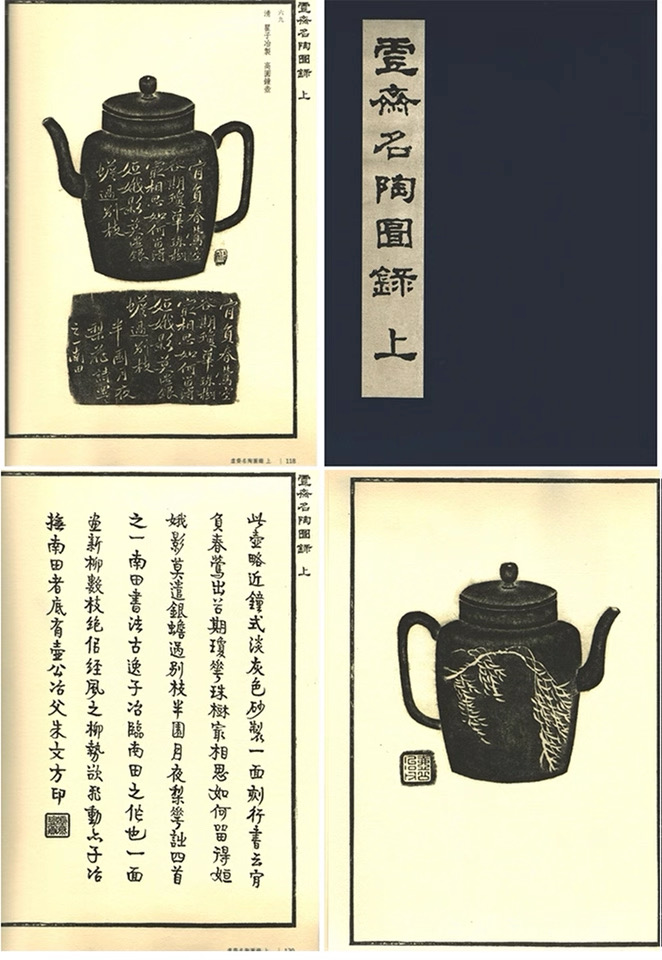 虛齋名陶圖錄 上
六九
清 瞿子冶製 高圓鐘壺
肎負春鶯出
谷期瓊華珠樹
㝡相思如何留得
姮娥影莫遣銀
蟾過別枝
肎負春鶯出
谷期瓊華珠樹
㝡相思如何留得
姮娥影莫遣銀
蟾過別枝
半園月夜
梨花詩四首
之一南田
虛齋名陶圖錄 上 | 118
虛齋名陶圖錄 上
虛齋名陶圖錄 上
此壺略近鐘式淡灰色砂製一面刻行書云肎
負春鶯出谷期瓊華珠樹㝡相思如何留得姮
娥影莫遣銀蟾過別枝半園月夜梨華詩四首
之一南田書法古逸子冶臨南田之作也一面
畫新柳數枝絕佀經風之柳勢欲飛動亦子冶
撫南田者底有壺公冶父朱文方印
壺公冶父